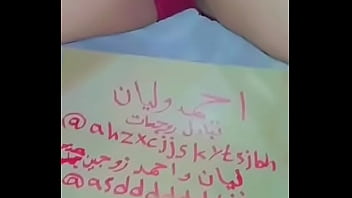 احمد وليان
تبادل زوجات
@ahzxcjjskytsjbh
ليان واحمد زوجين